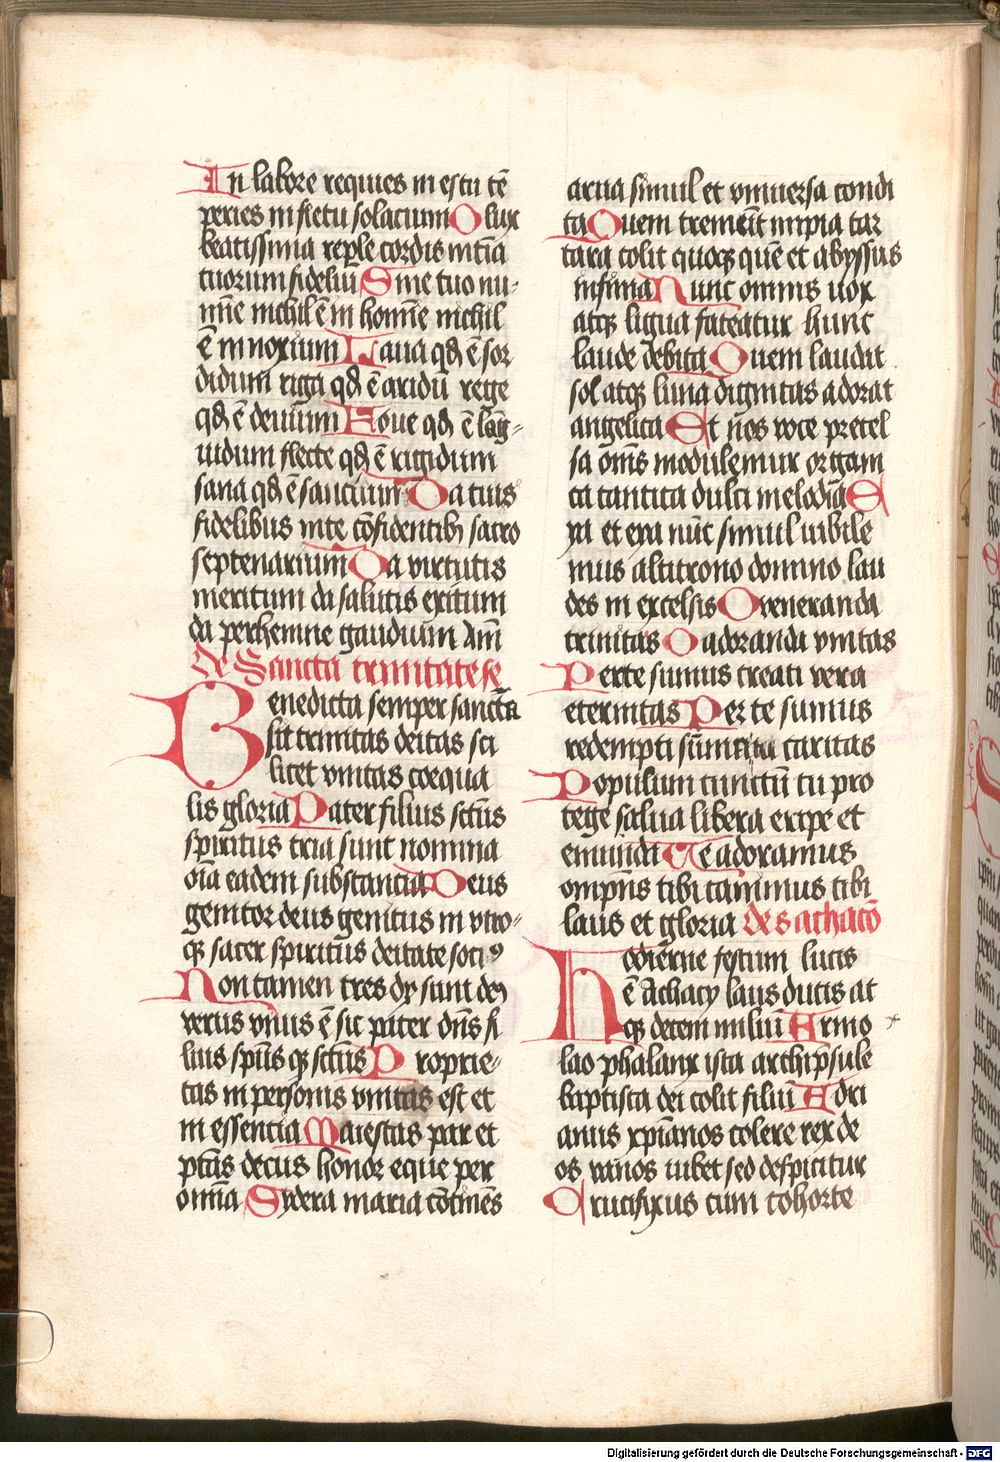 In labore requies in estu tē
peries in fletu solacium O lux
beatissima reple cordis intīa
tuorum fideliū Sine tuo nu-
mīe nichil ē in homīe nichil
ē innoxium Laua qđ ē sor
didum riga qđ ē aridū rege
qđ ē deuium Foue qđ ē lāg-
uidum flecte qđ ē rigidum
sana qđ ē saucium Da tuis
fidelibus in te cōfidentibꝫ sacro
septenarium Da virtutis
meritum da salutis exitum
da perhenne gaudium Am̄
De Sancta trinitate se
Benedicta semper sancta
sit trinitas deitas sci
licet vnitas coequa
lis gloria Pater filius sctūs
spiritus tria sunt nomina
oīa eadem substancia Deus
genitor deus genitus in vtro-
qꝫ sacer spiritus deitate sociꝰ
Non tamen tres dy sunt deꝰ
verus vnus ē sic pater dn̄s fi
lius spūs qꝫ sctūs Proprie-
tas in personis vnitas est et
in essencia Maiestas par et
ptās decus honor eque per
omīa Sydera maria cōtinēs
arua simul et vniuersa condi
ta Quem tremēt impia tar
tara colit quoqꝫ quē et abyssus
infima Nunc omnis uox
atqꝫ ligua fateatur hunc
laude debita Quem laudat
sol atqꝫ luna dignitas adorat
angelica Et nos voce precel
sa om̄s modulemur organi
ca cantica dulci melodia E
ya et eya nūc simul iubile
mus altitrono domino lau
des in excelsis O veneranda
trinitas O adoranda vnitas
Per te sumus creati vera
eternitas Per te sumus
redempti sūma tu caritas
Populum cunctū tu pro
tege salua libera eripe et
emunda Te adoramus
omp̄ns tibi canimus tibi
laus et gloria de s achacō
Hodierne festum lucis
ē Achacy laus ducis at
qꝫ decem miliū Armo
lao phalanx ista archip̄sule
baptista dei colit filiū Adri
anus xp̄ianos colere rex de
os vanos iubet sed despicitur
Crucifixus cum cohorte
Digitalisierung gefördert durch die Deutsche Forschungsgemeinschaft - DFG